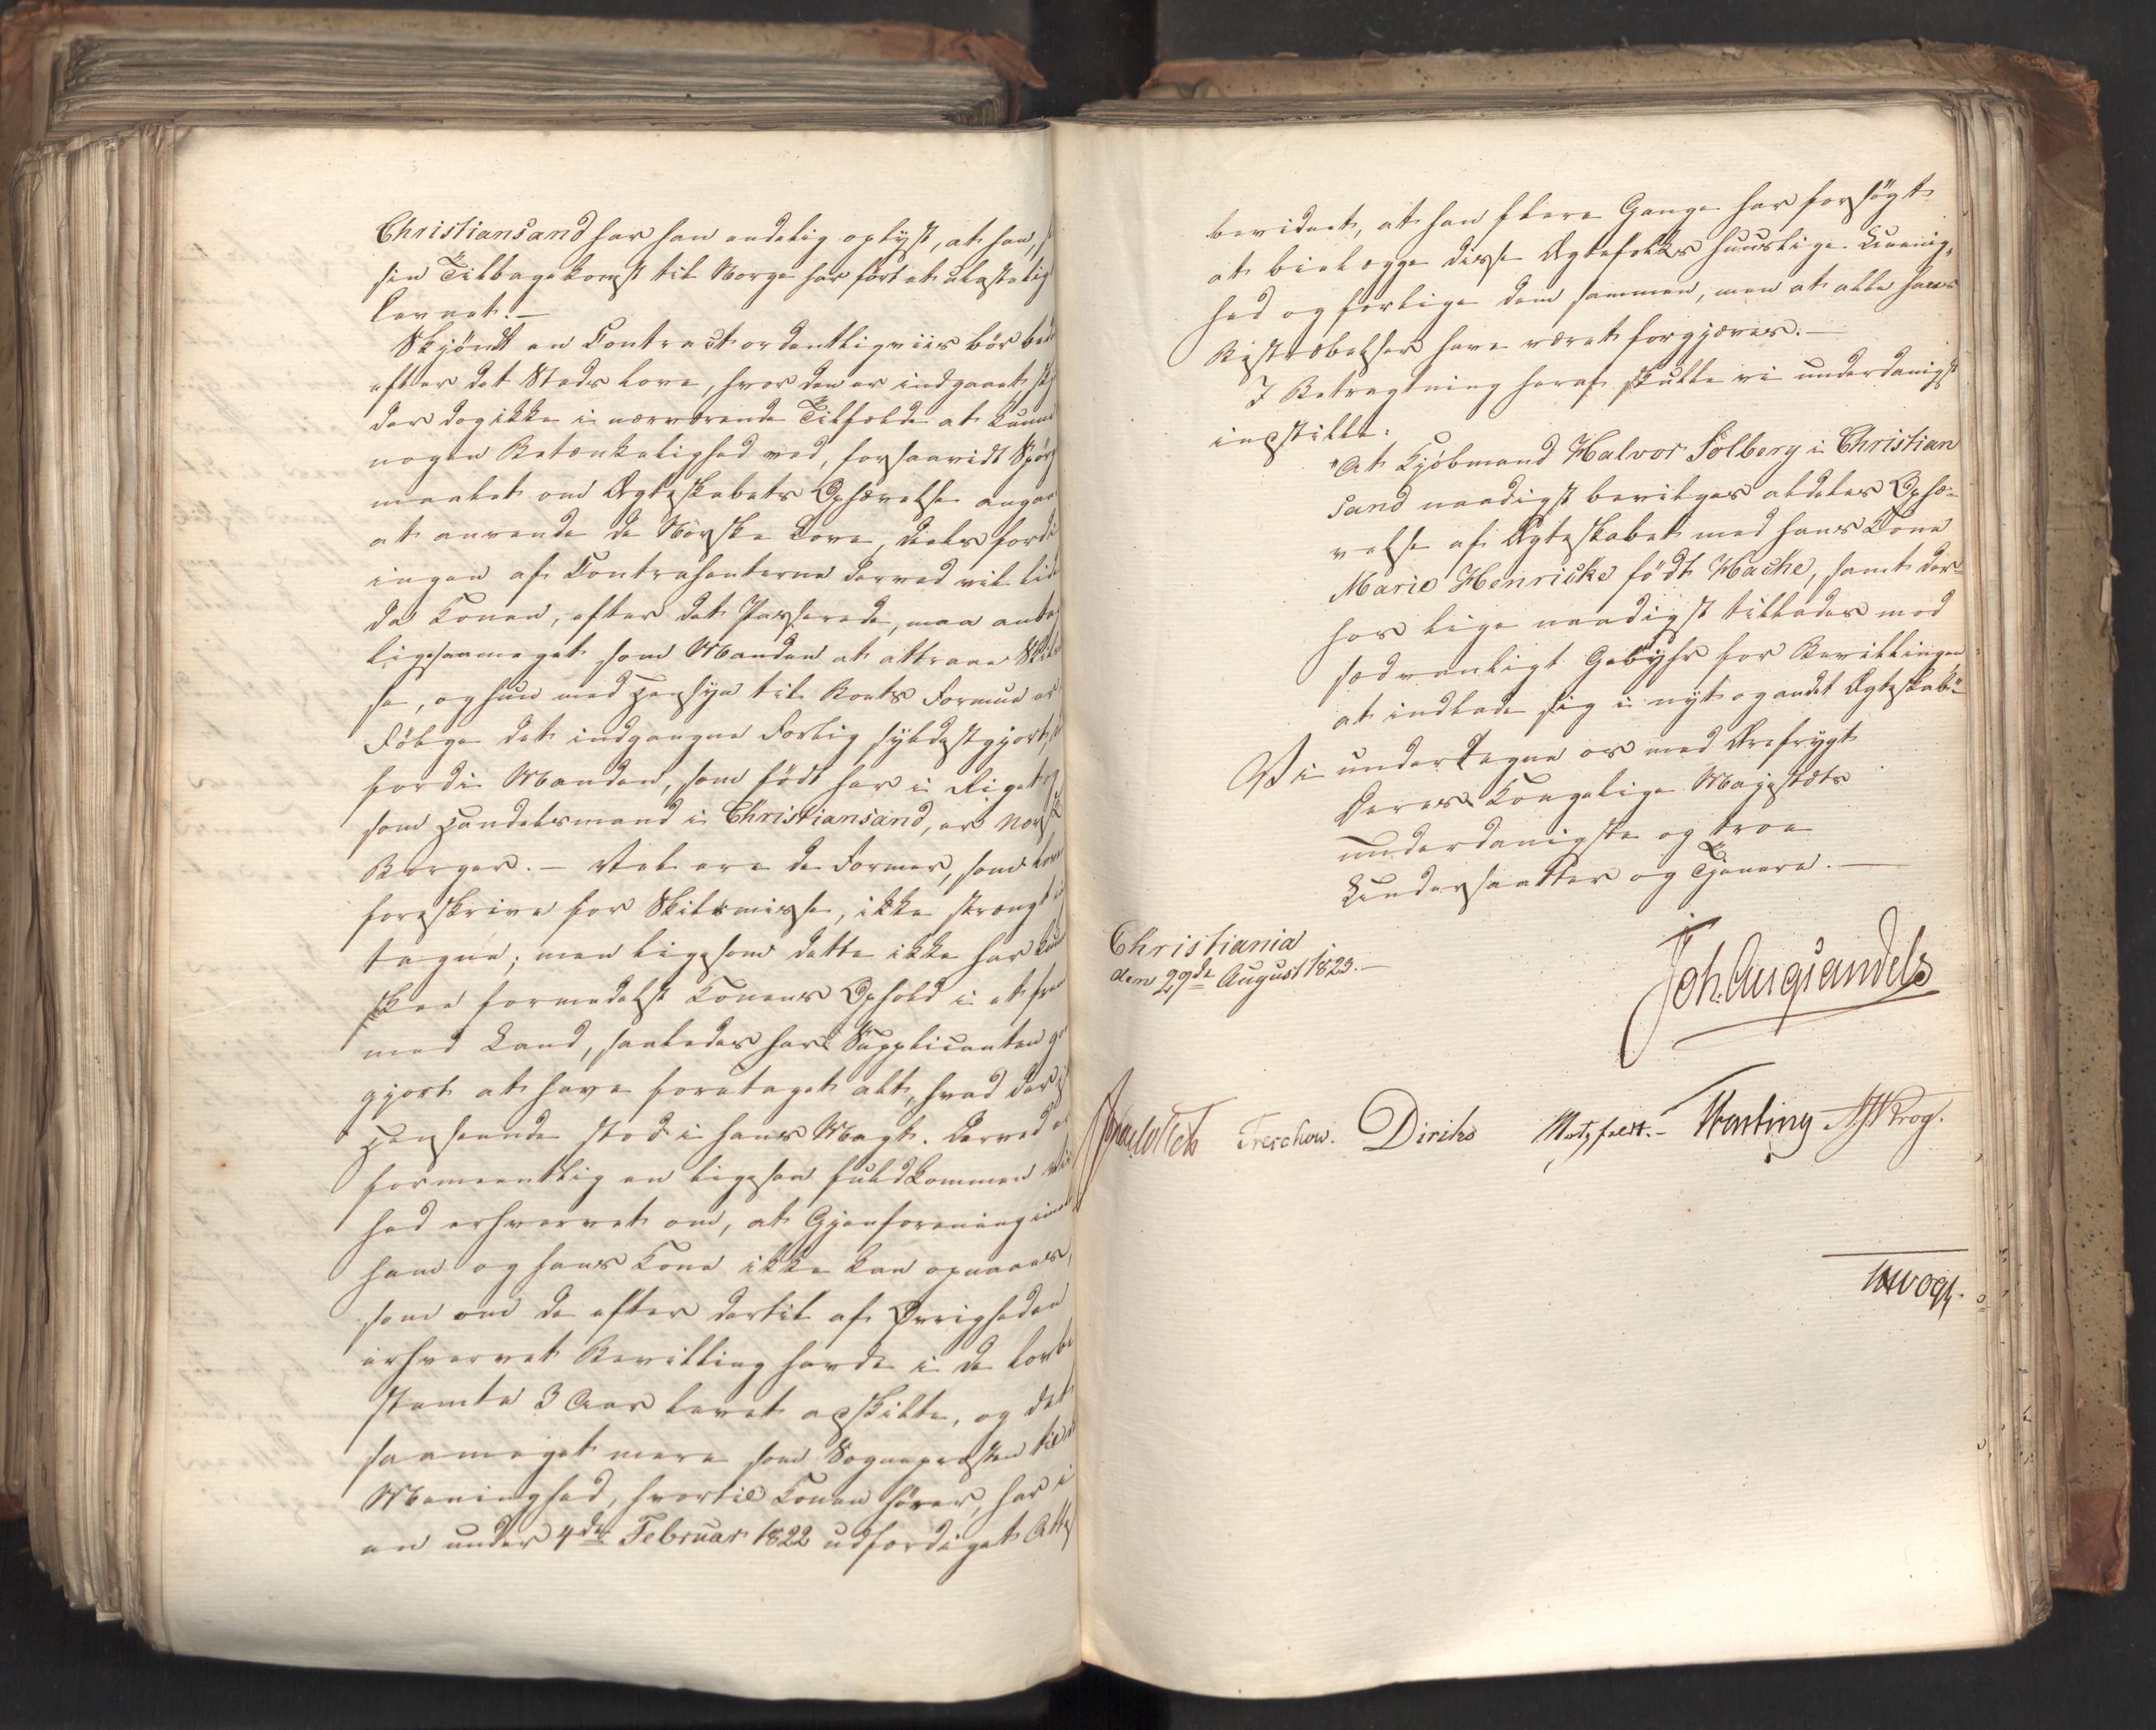 Christiansand har han endelig oplyst, at han,
sin Tilbagekomst til Norge har ført et ulasteligt
Levnet. —
Skjøndt en Contract ordentligviis bør bed
efter det Steds Love, hvor den er indgaaet,
der dog ikke i nærværende Tilfælde at kunne
nogen Betænkelighed ved, forsaavidt Spørgs
maalet om Ægteskabets Ophævelse angaa
at anvende de Norske Love, deels fordi
ingen af Contrahenterne derved vil lide
da Konen, efter det Passerede, maa anta
ligesaameget som Manden at attraae Skils
se, og hun med Hensyn til Boets Formue er
Følge det indgangne Forlig fyldestgjort,
fordi Manden, som født her i Riget og
som Handelsmand i Christiansand, er norsk
Borger. — Vel ere de Former, som Love
foreskrive for Skilsmisse, ikke strengt i
tagne; men ligesom dette ikke har kun
skee formedelst Konens Ophold i et frem
med Land, saaledes har Supplicanten go
gjort at have foretaget alt, hvad der i
Henseende stod i hans Magt. Derved er
formeentlig en ligesaa fuldkommen Vis
hed erhvervet om, at Gjenforening imel
ham og hans Kone ikke kan opnaaes,
som om de efter dertil af Øvrigheden
erhvervet Bevilling havde i de lovbe
stemte 3 Aar levet adskilte, og det
saameget mere som Sognepræsten til d
Meenighed, hvortil Konen hører, har i
en under 4de Februar 1822 udfærdiget Attes
bevidnet, at han flere Gange har forsøgt
at bielægge disse Ægtefolks huuslige Uenig„
hed og forlige dem sammen, men at alle hans
Bestræbelser have været forgjæves. —
I Betragtning heraf skulle vi underdanigst
indstille:
"At Kjøbmand Halvor Solberg i Christian
sand naadigst bevilges aldeles Ophæ„
velse af Ægteskabet med hans Kone
Marie Henricke født Hacke, samt der„
hos lige naadigst tillades mod
sædvanligt Gebyhr for Bevillingen
at indlade sig i nyt og andet Ægteskab."
Vi undertegne os med Ærefrygt
Deres Kongelige Majestæts
underdanigste og troe
Undersaatter og Tjenere. —
Christiania
den 29de August 1823. —
Joh. Aug. Sandels
Treschow. Diriks Motzfeldt. — Fasting AJKrog.
Vogt.